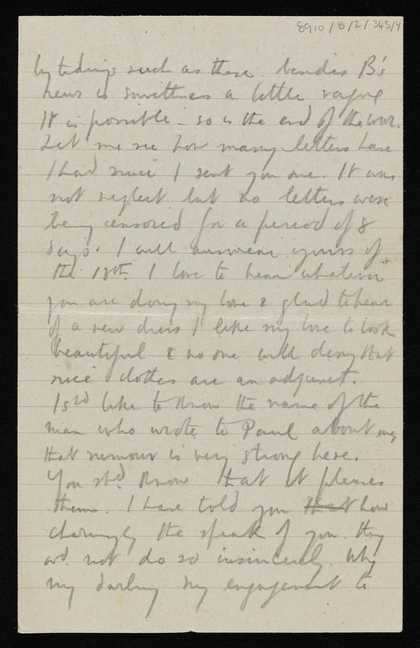 8910/8/2/343/4
by tidings such as these. besides B's
news is sometimes a little vague
It is possible - so is the end of the war.
Let me see how many letters have
I had since I sent you one. It was
not neglect but no letters were
being censored for a period of 8
days. I will answer yours of
the 18th. I love to hear whatever
you are doing my love & glad to hear
of a new dress I like my love to look
beautiful & no one will deny that
nice clothes are an adjunct.
I shd like to know the name of the
man who wrote to Paul about me,
that rumour is very strong here.
You shd know that it pleases
them. I have told you that how
charmingly the speak of you. they
wd. not do so insincerely. Why
my darling my engagement to